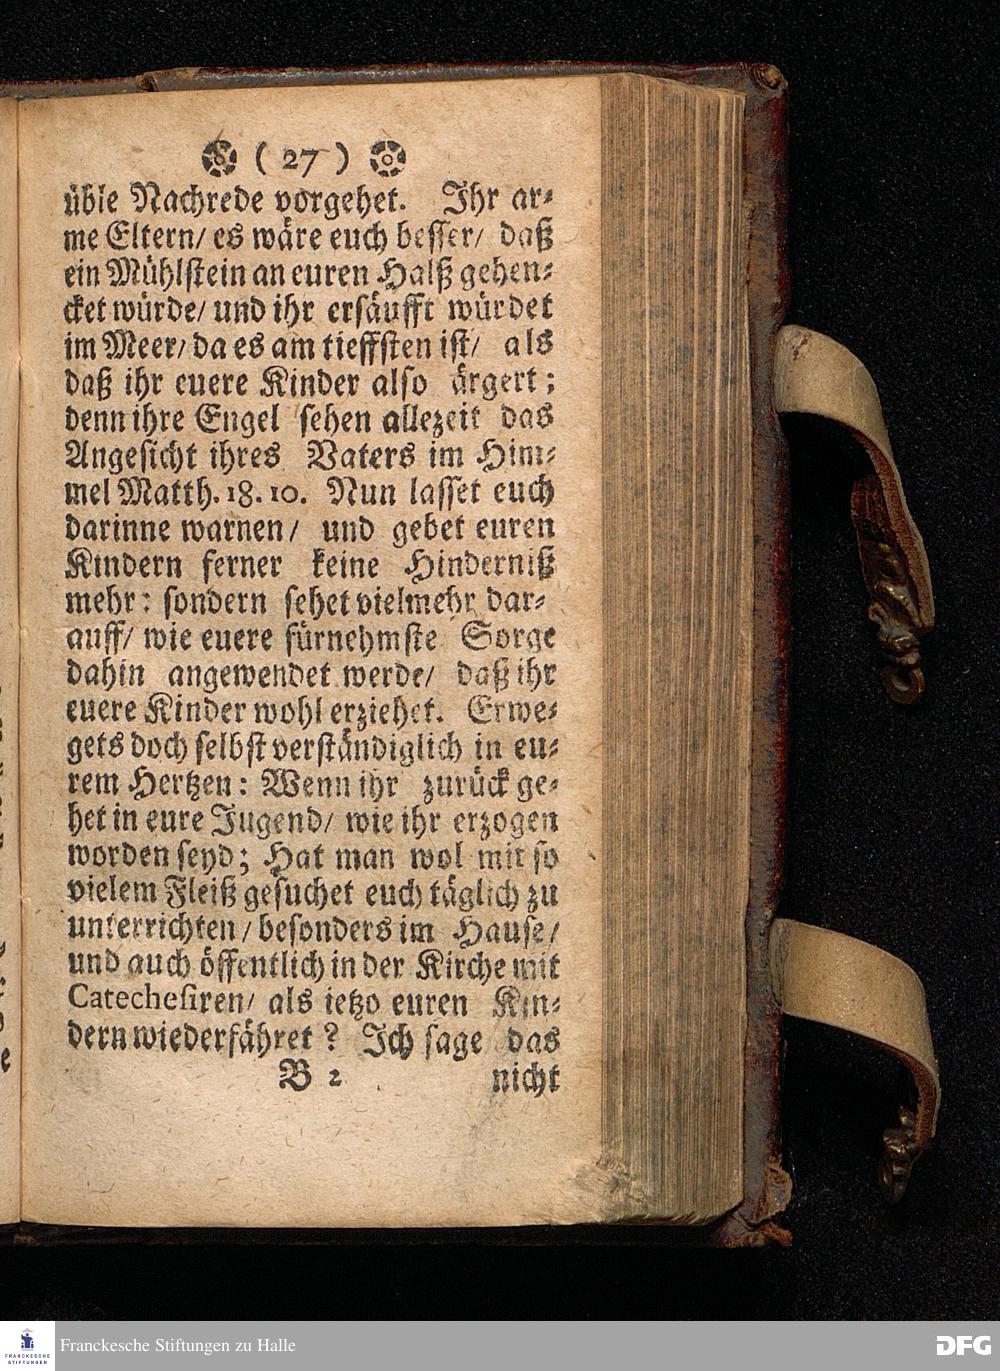 ( 27 )
üble Nachrede vorgehet. Ihr ar-
me Eltern/ es wäre euch besser/ daß
ein Mühlstein an euren Halß gehen-
cket würde/ und ihr ersäufft würdet
im Meer/ da es am tieffsten ist/ als
daß ihr euere Kinder also ärgert;
denn ihre Engel sehen allezeit das
Angesicht ihres Vaters im Him-
mel Matth. 18. 10. Nun lasset euch
darinne warnen/ und gebet euren
Kindern ferner keine Hinderniß
mehr: sondern sehet vielmehr dar-
auff/ wie euere fürnehmste Sorge
dahin angewendet werde/ daß ihr
euere Kinder wohl erziehet. Erwe-
gets doch selbst verständiglich in eu-
rem Hertzen: Wenn ihr zurück ge-
het in eure Jugend/ wie ihr erzogen
worden seyd; Hat man wol mit so
vielem Fleiß gesuchet euch täglich zu
unterrichten/ besonders im Hause/
und auch öffentlich in der Kirche mit
Catechesiren/ als ietzo euren Kin-
dern wiederfähret? Ich sage das
B 2 nicht
FRANCKESCHE STIFTUNGEN
Franckesche Stiftungen zu Halle
DFG